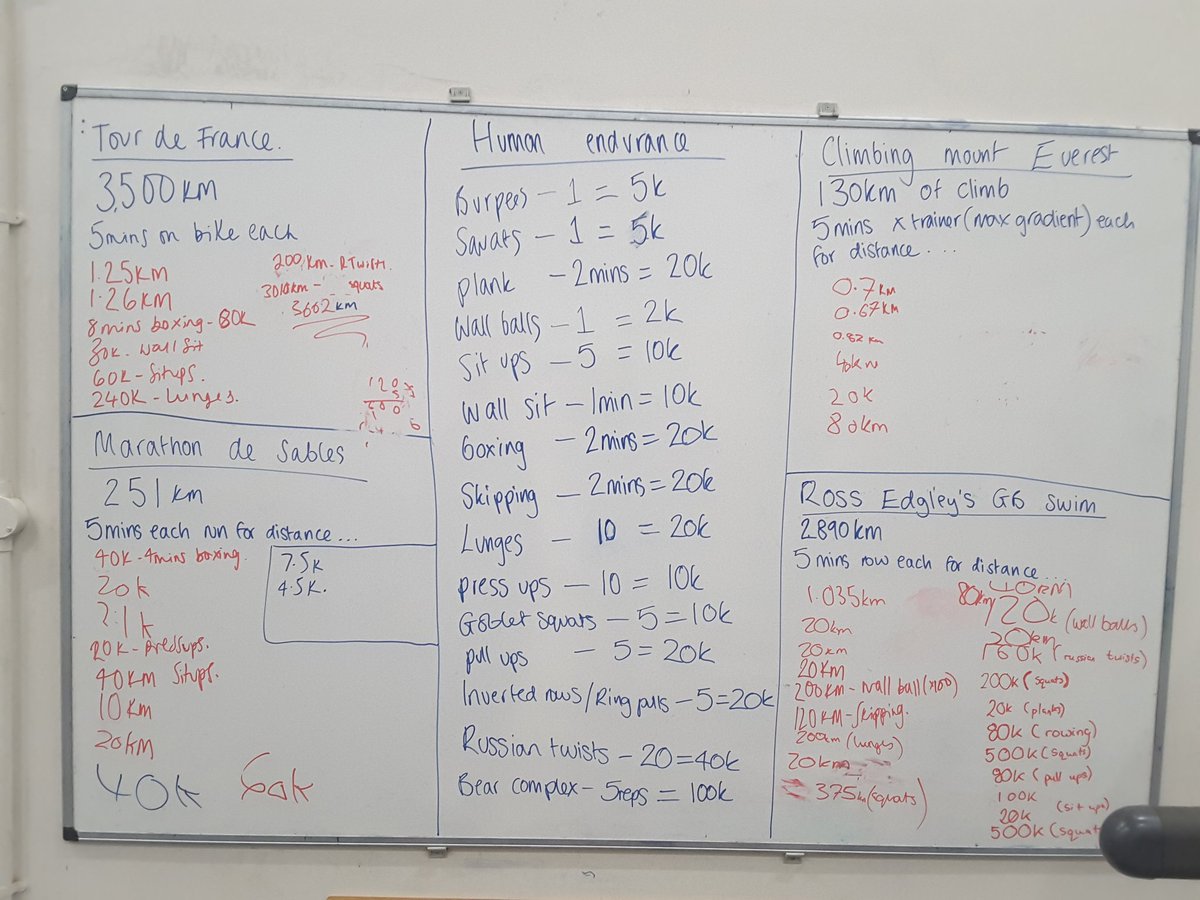 Tour de France.
3,500KM
5mins on bike each
1.25KM
1.26KM
8mins boxing - 80K
80K - Wall Sit
60K - Situps.
240K - Lunges.
200 Km - R Twists.
3010km - squats
3602 KM
120
Marathon de Sables
251 KM
5mins each run for distance...
40K - 4mins boxing.
20k
2.1k
20K - Pressups.
40KM Situps.
10KM
20KM
40k 60k
7.5K
4.5K.
Human endurance
Burpees - 1 = 5k
Squats - 1 = 5k
plank - 2mins = 20k
Wall balls - 1 = 2k
Sit ups - 5 = 10k
Wall sit - 1min = 10k
boxing - 2mins = 20k
Skipping - 2mins = 20k
Lunges - 10 = 20k
press ups - 10 = 10k
Goblet squats - 5 = 10k
pull ups - 5 = 20k
Inverted rows/Ring pulls - 5 = 20k
Russian twists - 20 = 40k
Bear complex - 5reps = 100k
Climbing mount Everest
130km of climb
5mins x trainer (max gradient) each
for distance....
0.7KM
0.67KM
0.82 Km
20k
80km
Ross Edgley's GB Swim
2890km
5 mins row each for distance...
1.035km
20km
20km
20KM
200KM - wall ball (x100)
120KM - Skipping.
200km (lunges)
20km
375km (squats)
80km
40KM
120k (wall balls)
20km
160k (russian twists)
200k (squats)
20k (planks)
80k (rowing)
500k (squats)
80k (pull ups)
100k
20k (sit ups)
500k (squat